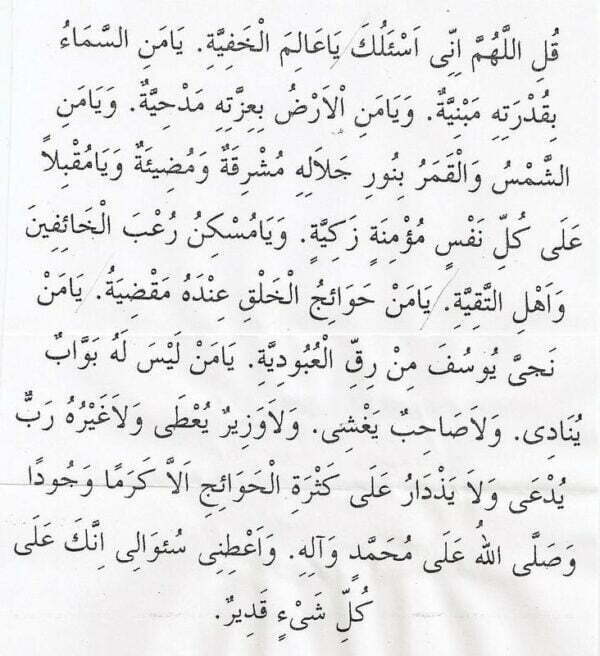 قُلِ اللَّهُمَّ اِنِّى اَسْئَلُكَ يَاعَالِمَ الْخَفِيَّةِ. يَامَنِ السَّمَاءُ
بِقُدْرَتِهِ مَبْنِيَّةٌ. وَيَامَنِ اْلاَرْضُ بِعِزَّتِهِ مَدْحِيَّةٌ. وَيَامَنِ
الشَّمْسُ وَالْقَمَرُ بِنُورِ جَلاَلِهِ مُشْرِقَةٌ وَمُضِيئَةٌ وَيَامُقْبِلاً
عَلَى كُلِّ نَفْسٍ مُؤْمِنَةٍ زَكِيَّةٍ. وَيَامُسْكِنُ رُعْبَ الْخَائِفِينَ
وَاَهْلِ التَّقِيَّةِ. يَامَنْ حَوَائِجُ الْخَلْقِ عِنْدَهُ مَقْضِيَةُ. يَامَنْ
نَجىَّ يُوسُفَ مِنْ رِقِّ الْعُبُودِيَّةِ. يَامَنْ لَيْسَ لَهُ بَوَّابٌ
يُنَادِى. وَلاَصَاحِبٌ يَغْشِى. وَلاَوَزِيرٌ يُعْطَى وَلاَغَيْرُهُ رَبٌّ
يُدْعَى وَلاَ يَذْدَارُ عَلَى كَثْرَةِ الْحَوَائِجِ اَلاَّ كَرَمًا وَجُودًا
وَصَلَّى اللهُ عَلَى مُحَمَّدٍ وَآلِهِ. وَاَعْطِنِى سُئوَالِى اِنَّكَ عَلَى
كُلِّ شَىْءٍ قَدِيرٌ.